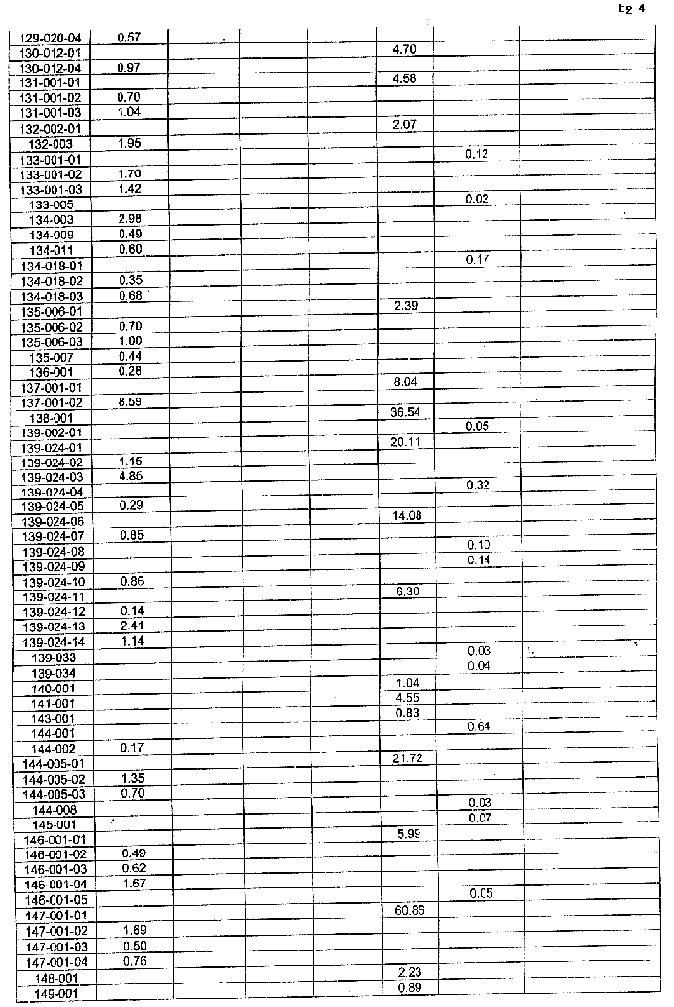 tg 4
129-020-04 0.57
130-012-01 4.70
130-012-04 0.97
131-001-01 4.58
131-001-02 0.70
131-001-03 1.04
132-002-01 2.07
132-003 1.95
133-001-01 0.12
133-001-02 1.70
133-001-03 1.42
133-005 0.02
134-003 2.98
134-009 0.49
134-011 0.60
134-018-01 0.17
134-018-02 0.35
134-018-03 0.68
135-006-01 2.39
135-006-02 0.70
135-006-03 1.00
135-007 0.44
136-001 0.28
137-001-01 8.04
137-001-02 8.59
138-001 36.54
139-002-01 0.05
139-024-01 20.11
139-024-02 1.15
139-024-03 4.85
139-024-04 0.32
139-024-05 0.29
139-024-06 14.08
139-024-07 0.85
139-024-08 0.10
139-024-09 0.14
139-024-10 0.86
139-024-11 6.30
139-024-12 0.14
139-024-13 2.41
139-024-14 1.14
139-033 0.03
139-034 0.04
140-001 1.04
141-001 4.55
143-001 0.83
144-001 0.64
144-002 0.17
144-005-01 21.72
144-005-02 1.35
144-005-03 0.70
144-008 0.03
145-001 0.07
146-001-01 5.99
146-001-02 0.49
146-001-03 0.62
146-001-04 1.67
146-001-05 0.05
147-001-01 60.86
147-001-02 1.69
147-001-03 0.50
147-001-04 0.76
148-001 2.23
149-001 0.89